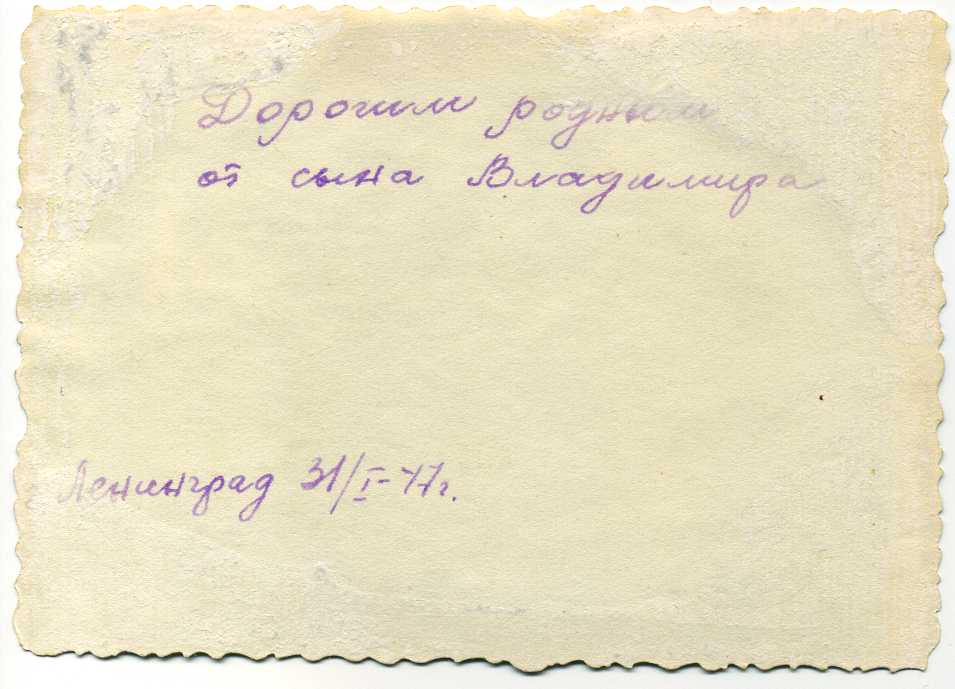 Дорогим родным
от сына Владимира
Ленинград 31/I-77г.